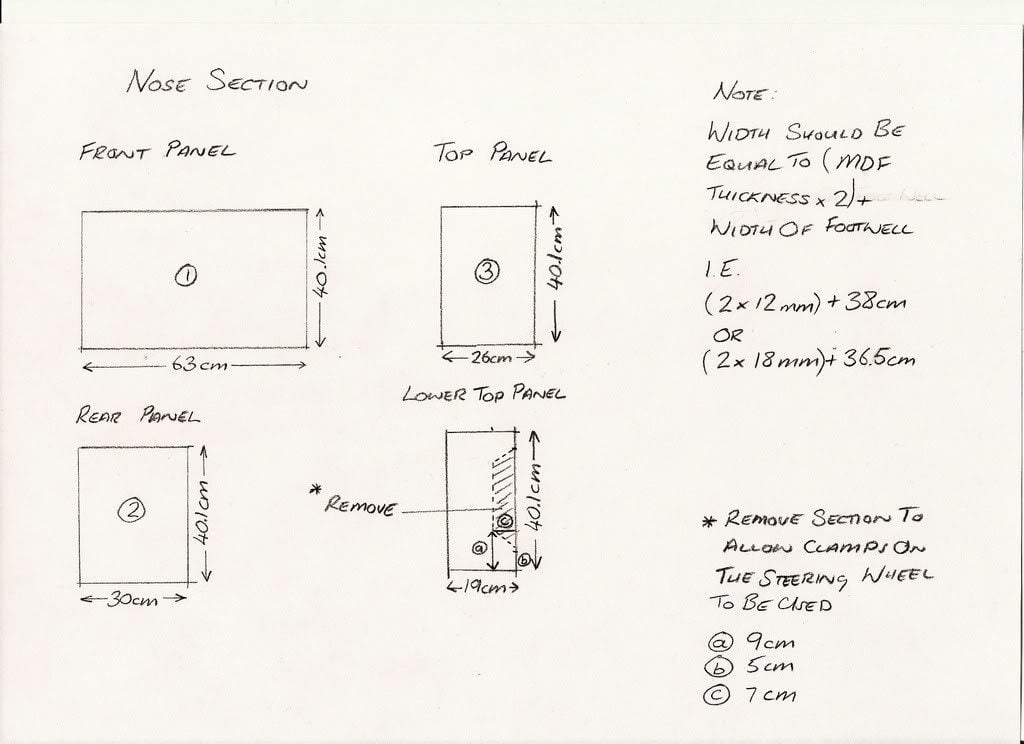 NOSE SECTION
FRONT PANEL
1
40.1cm
63cm
TOP PANEL
3
40.1cm
26cm
REAR PANEL
2
40.1cm
30cm
LOWER TOP PANEL
* REMOVE
c
a
b
40.1cm
19cm
NOTE:
WIDTH SHOULD BE
EQUAL TO (MDF
THICKNESS x 2)+
WIDTH OF FOOTWELL
I.E.
(2 x 12mm) + 38cm
OR
(2 x 18mm) + 36.5cm
* REMOVE SECTION TO
ALLOW CLAMPS ON
THE STEERING WHEEL
TO BE USED
a 9cm
b 5cm
c 7cm